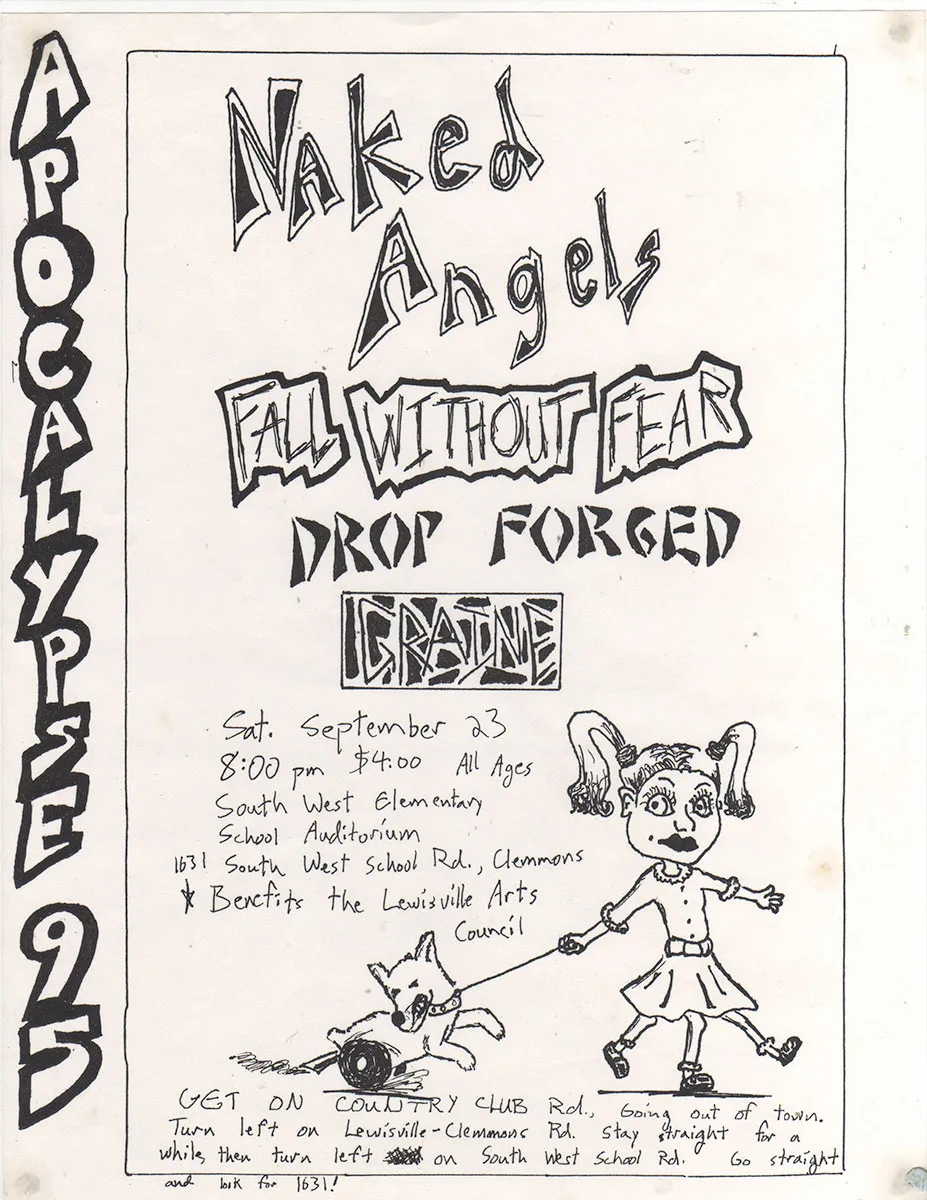 APOCALYPSE 95
Naked
Angels
FALL WITHOUT FEAR
DROP FORGED
IGRAINE
Sat. September 23
8:00 pm $4.00 All Ages
South West Elementary
School Auditorium
1631 South West School Rd., Clemmons
* Benefits the Lewisville Arts
Council
GET ON COUNTRY CLUB Rd., Going out of town.
Turn left on Lewisville-Clemmons Rd. stay straight for a
while, then turn left on South West School Rd. Go straight
and look for 1631!